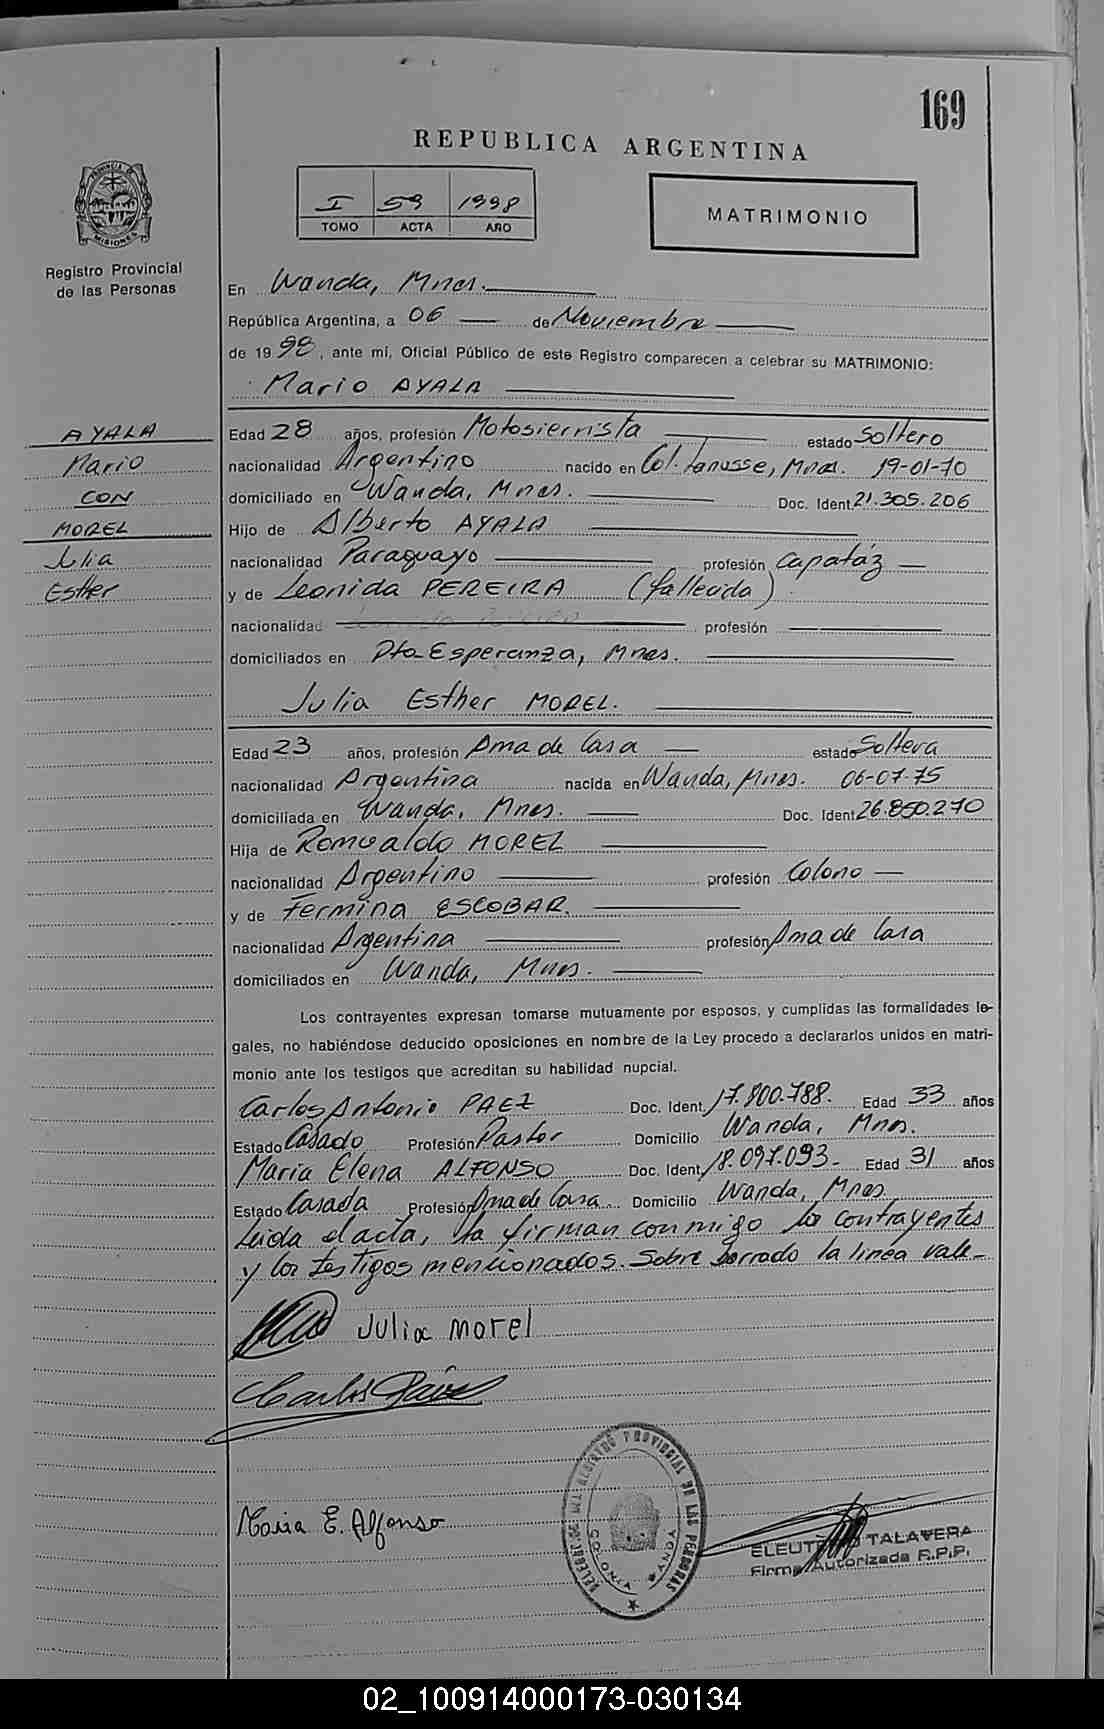 169
REPUBLICA ARGENTINA
I 59 1998
TOMO ACTA AÑO
MATRIMONIO
PROVINCIA DE MISIONES
Registro Provincial
de las Personas
En Wanda, Mnes.
República Argentina, a 06 de Noviembre
de 1998, ante mí, Oficial Público de este Registro comparecen a celebrar su MATRIMONIO:
Mario AYALA
AYALA
Mario
CON
MOREL
Julia
Esther
Edad 28 años, profesión Motosierrista estado Soltero
nacionalidad Argentino nacido en Col. Lanusse, Mnes. 19-01-70
domiciliado en Wanda, Mnes. Doc. Ident. 21.305.206
Hijo de Alberto AYALA
nacionalidad Paraguayo profesión Capatáz
y de Leonida PEREIRA (fallecida)
nacionalidad profesión
domiciliados en Pto. Esperanza, Mnes.
Julia Esther MOREL.
Edad 23 años, profesión Ama de Casa estado Soltera
nacionalidad Argentina nacida en Wanda, Mnes. 06-07-75
domiciliada en Wanda, Mnes. Doc. Ident. 26.850.270
Hija de Romualdo MOREL
nacionalidad Argentino profesión Colono
y de Fermina ESCOBAR.
nacionalidad Argentina profesión Ama de Casa
domiciliados en Wanda, Mnes.
Los contrayentes expresan tomarse mutuamente por esposos, y cumplidas las formalidades le-
gales, no habiéndose deducido oposiciones en nombre de la Ley procedo a declararlos unidos en matri-
monio ante los testigos que acreditan su habilidad nupcial.
Carlos Antonio PAEZ Doc. Ident. 17.800.788. Edad 33 años
Estado Casado Profesión Pastor Domicilio Wanda, Mnes.
Maria Elena ALFONSO Doc. Ident. 18.097.093 Edad 31 años
Estado Casada Profesión Ama de Casa. Domicilio Wanda, Mnes
Leida el acta, la firman conmigo los contrayentes
y los testigos mencionados. Sobre borrado la linea vale-
Julia Morel
Carlos Páez
Maria E. Alfonso
DELEGAC. DEL REGISTRO PROVINCIAL DE LAS PERSONAS
COLONIA WANDA
ELEUTERIO TALAVERA
Firma Autorizada R.P.P.
02_100914000173-030134